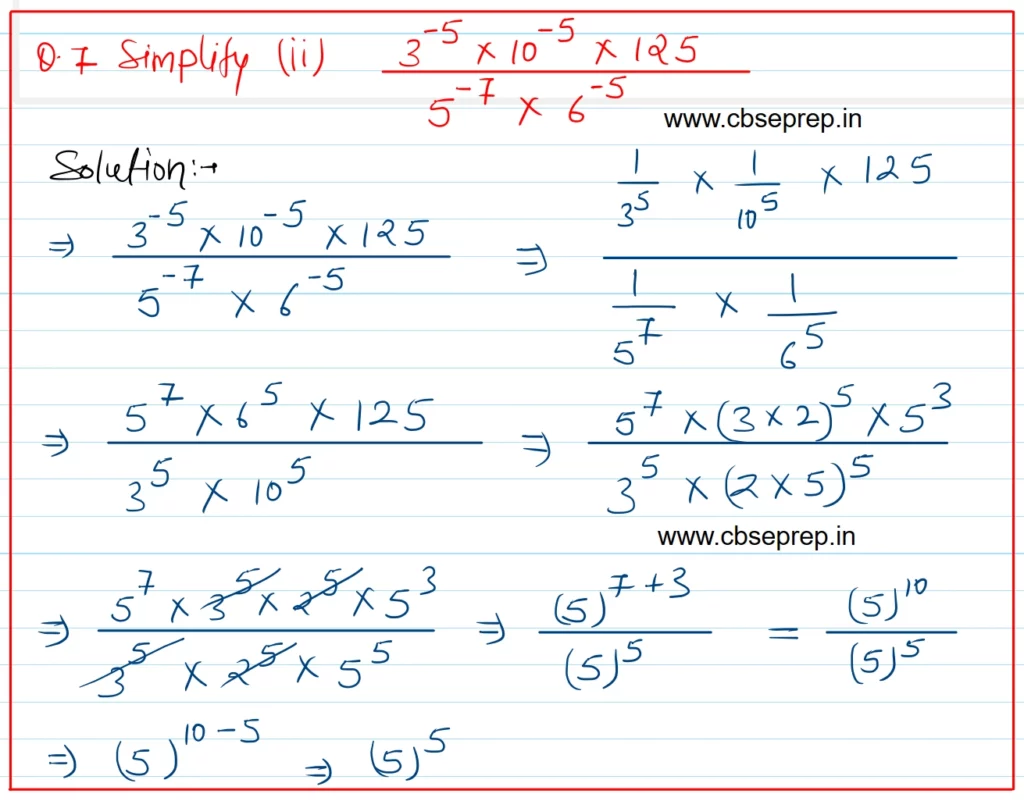 Q.7 Simplify (ii) (3⁻⁵ × 10⁻⁵ × 125) / (5⁻⁷ × 6⁻⁵)
www.cbseprep.in
Solution:→
⇒ (3⁻⁵ × 10⁻⁵ × 125) / (5⁻⁷ × 6⁻⁵) ⇒ (1/3⁵ × 1/10⁵ × 125) / (1/5⁷ × 1/6⁵)
⇒ (5⁷ × 6⁵ × 125) / (3⁵ × 10⁵) ⇒ (5⁷ × (3 × 2)⁵ × 5³) / (3⁵ × (2 × 5)⁵)
www.cbseprep.in
⇒ (5⁷ × 3⁵ × 2⁵ × 5³) / (3⁵ × 2⁵ × 5⁵) ⇒ (5)⁷⁺³ / (5)⁵ = (5)¹⁰ / (5)⁵
⇒ (5)¹⁰⁻⁵ ⇒ (5)⁵